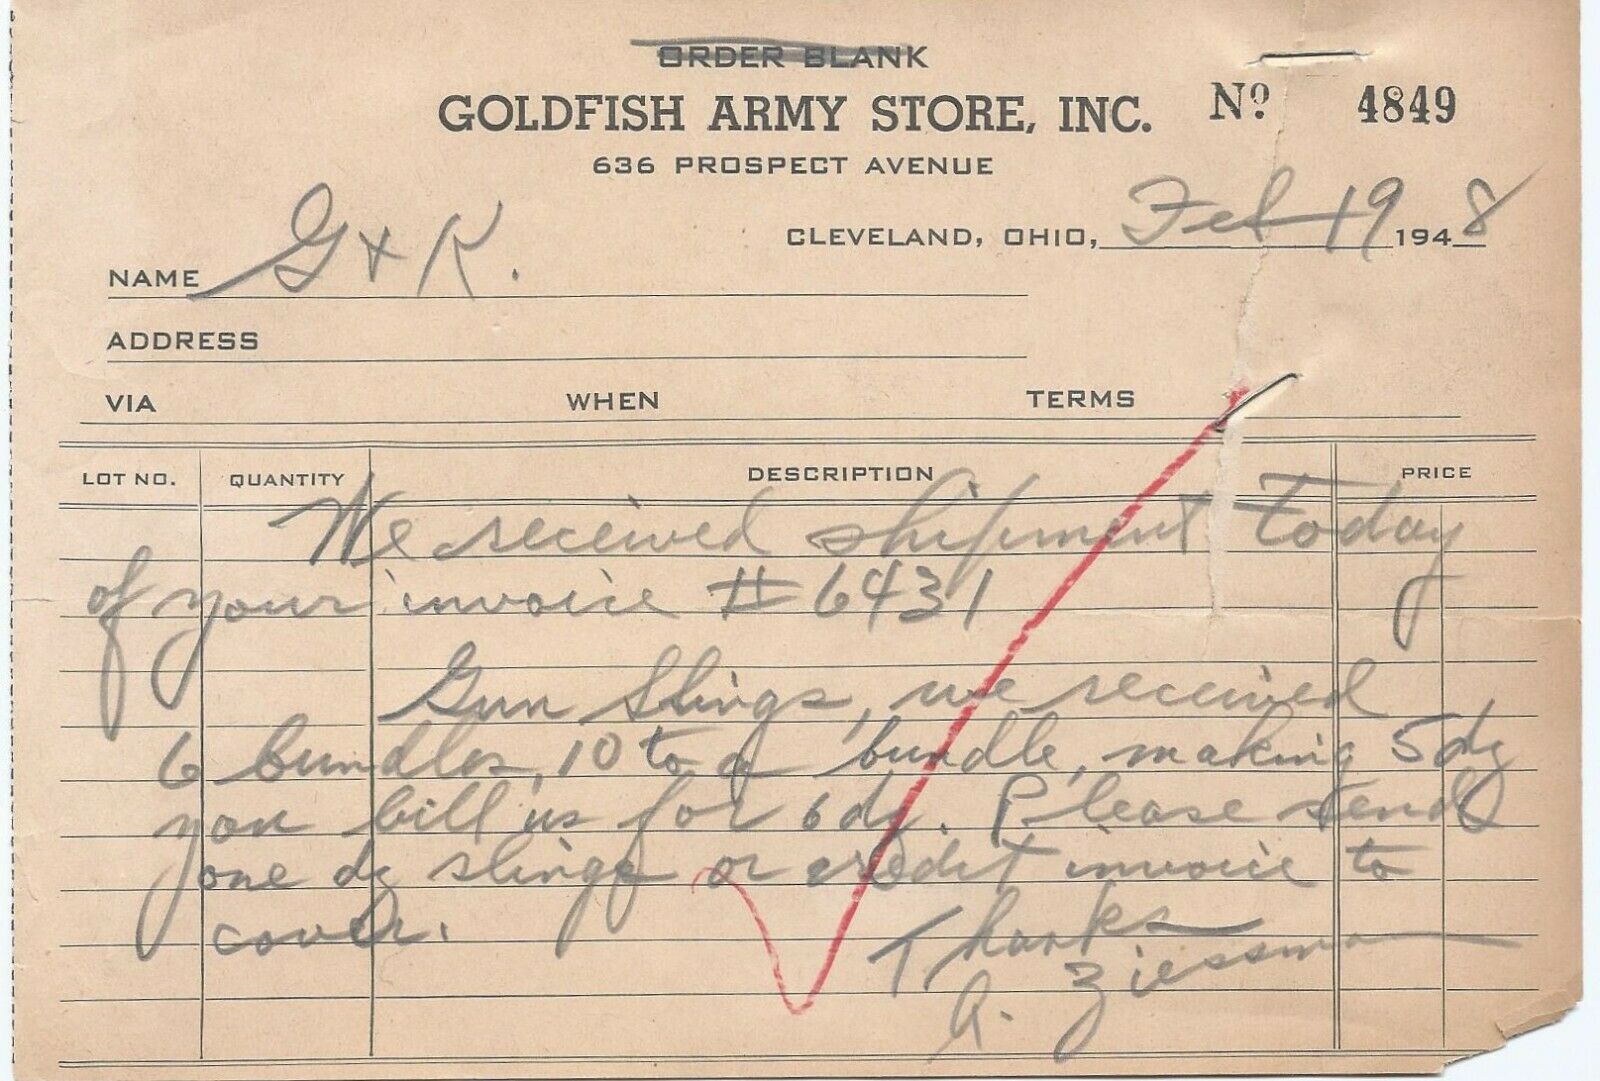 ORDER BLANK
GOLDFISH ARMY STORE, INC. No 4849
636 PROSPECT AVENUE
CLEVELAND, OHIO, Feb 19 1948
NAME G & K.
ADDRESS
VIA WHEN TERMS
LOT NO. QUANTITY DESCRIPTION PRICE
We received shipment today
of your invoice # 6431
Gun Slings, we received
6 bundles, 10 to a bundle, making 5 dz
you bill us for 6 dz. Please send
one dz slings or credit invoice to
cover.
Thanks
A. Ziessman